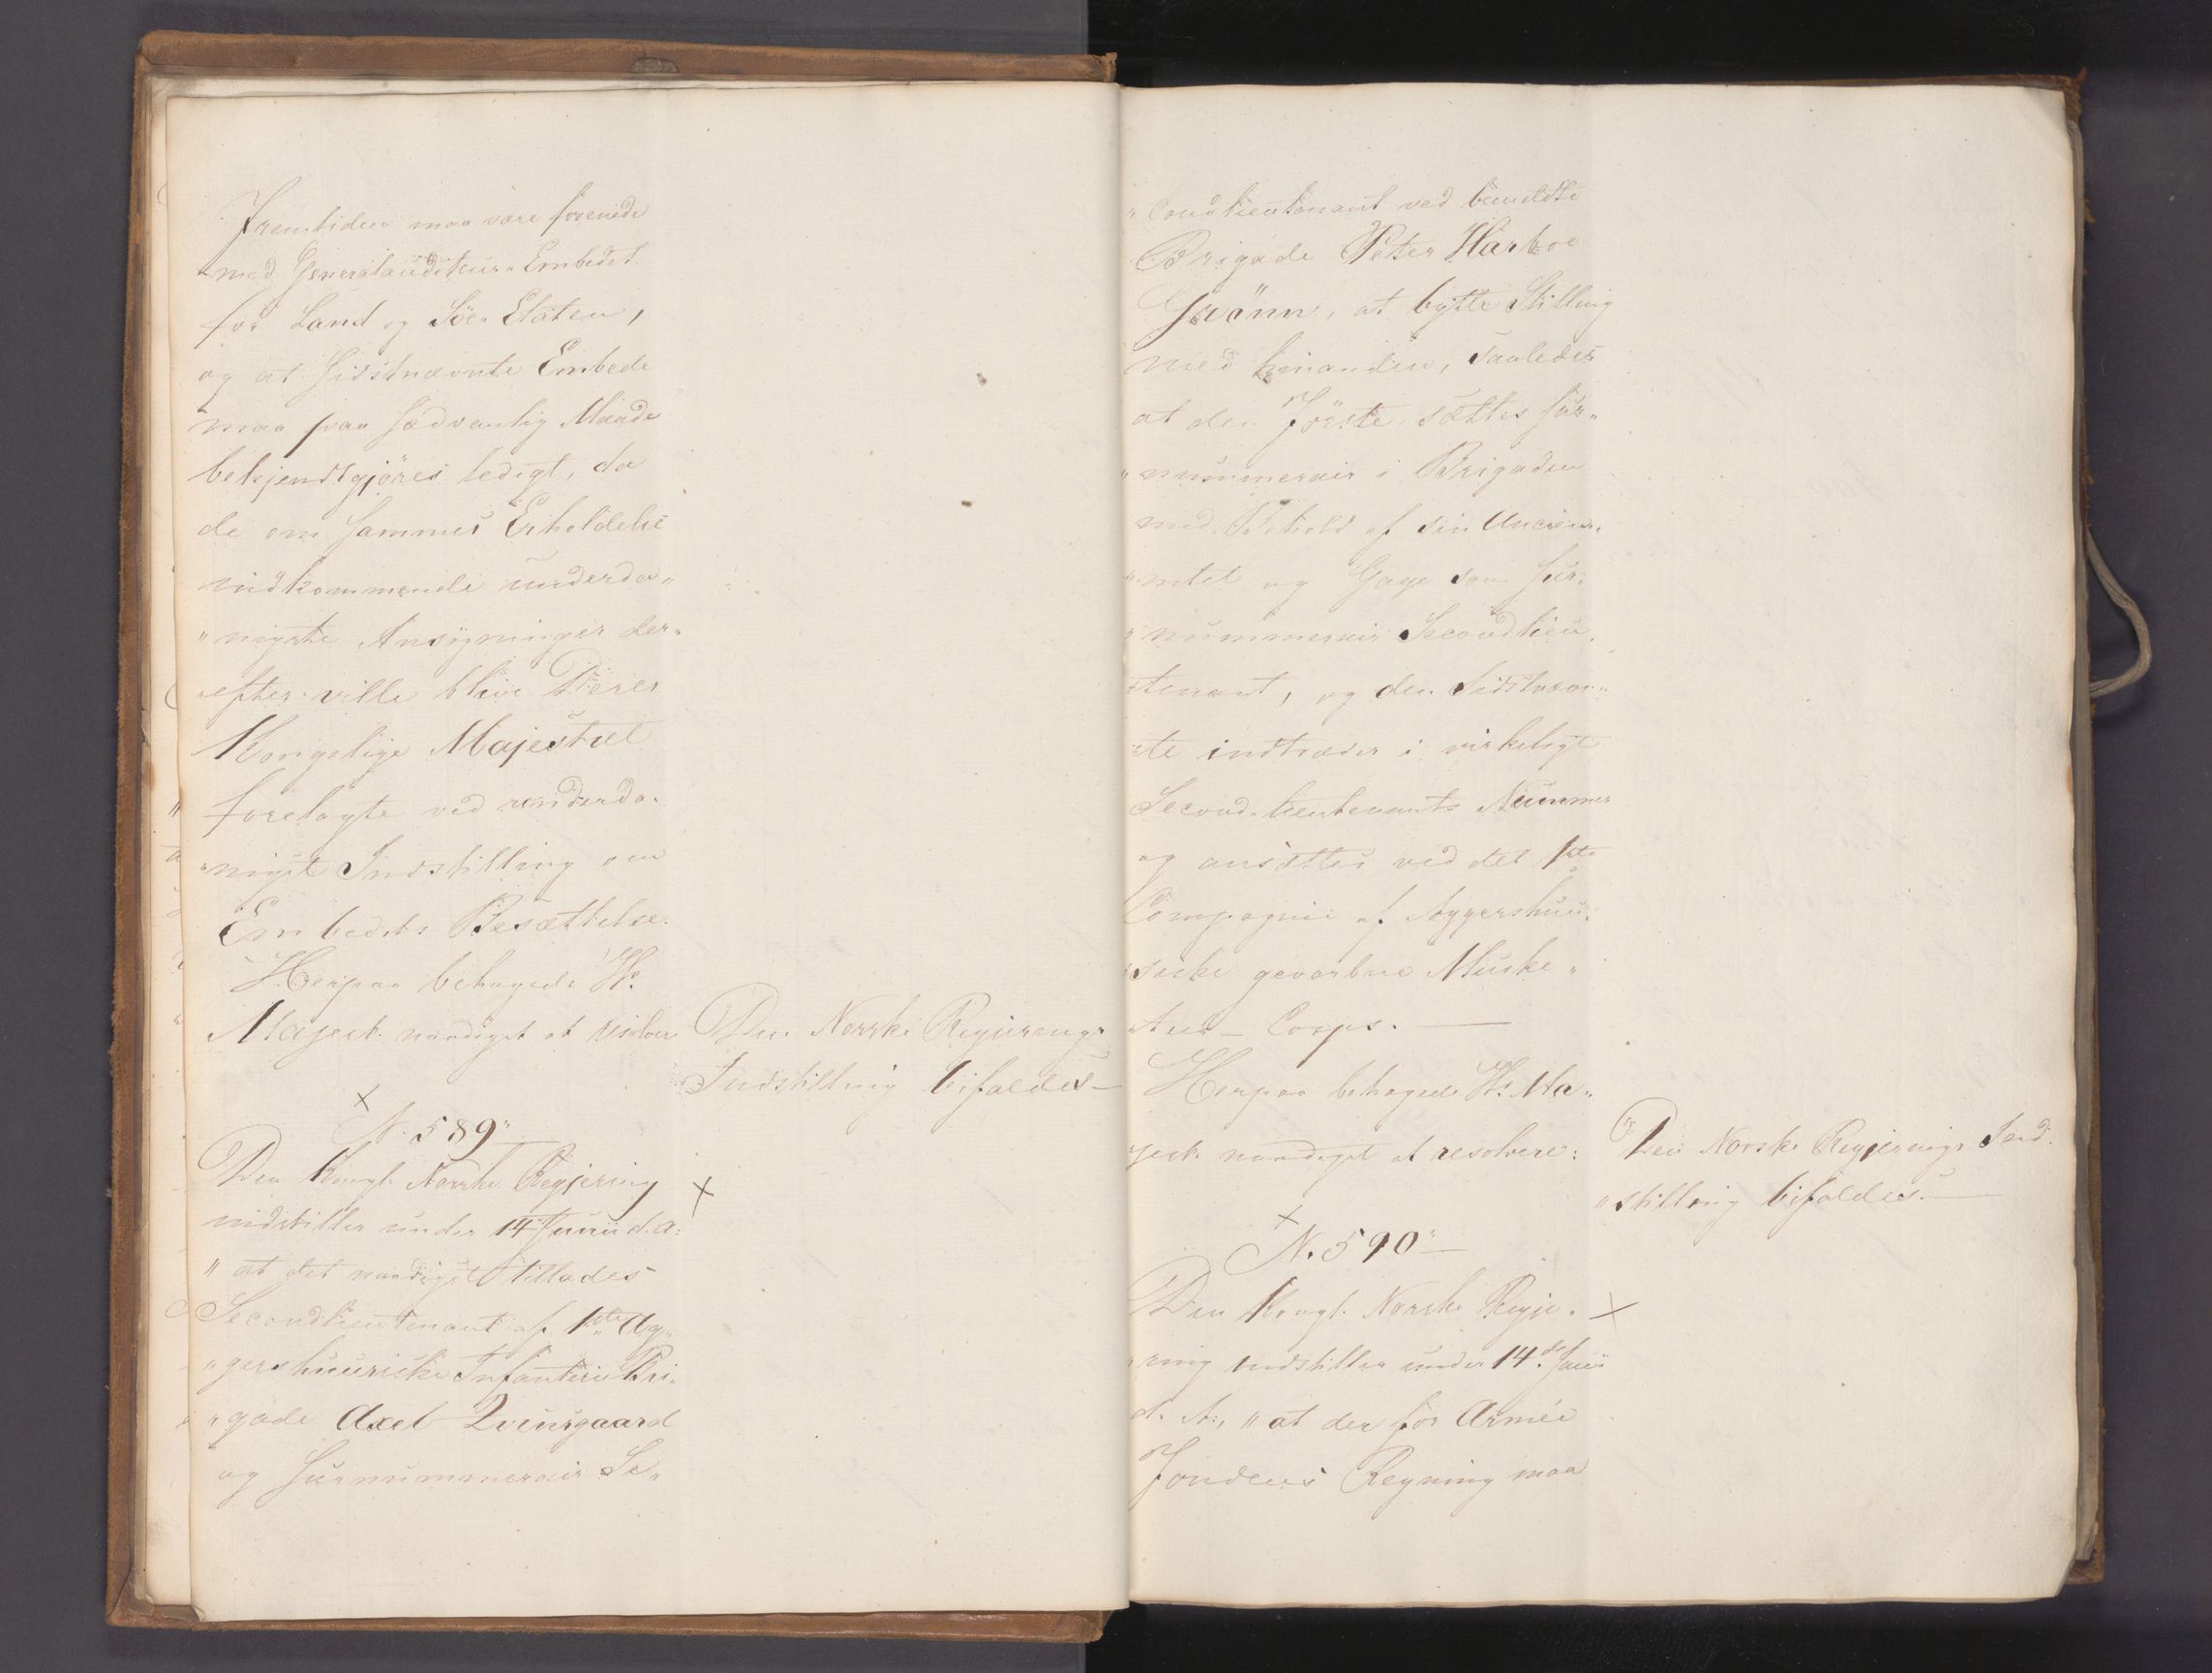 Fremtiden maa være forenede
med Generalauditeur-Embedet
for Land og Söe-Etaten,
og at sidstnævnte Embede
maa paa sædvanlig Maade
bekjendtgjöres ledigt, da
de om sammes Erholdelse
indkommende underda„
„nigste Ansögninger der„
„efter ville blive Deres
Kongelige Majestæt
forelagte ved underda„
„nigst Indstilling om
Embedets Besættelse.
Herpaa behagede Hs.
Majest. naadigst at resolvere
Den Norske Regjerings
Indstilling bifaldes —
N. 589„
Den Kongl. Norske Regjering
indstiller under 14 Junii d. A:
„ at det naadigst tillades
Secondlieutenant af 1ste Ag„
„gershuusiske Infanterie Bri„
„gade Axel Qvinsgaard
og surnummerair Se„
„condlieutenant ved bemeldte
Brigade Peter Harboe
Grönn, at bytte Stilling
med hinanden, saaledes
at den Förste sættes sur„
„nummerair i Brigaden
med Behold af sin Ancien„
„netet og Gage som sur„
„nummerair Secondlieu„
„tenant, og den Sidstnævn„
„te indtræder i virkeligt
Second-lieutenants Nummer
og ansættes ved det 1ste
Compagnie af Aggershuu„
„siske gevorbne Muske„
„teer-Corps. —
Herpaa behagede Hs. Ma„
jest. naadigst at resolvere:
Den Norske Regjerings Ind„
„stilling bifaldes. —
N. 590„
Den Kongl. Norske Regje„
„ring indstiller under 14de Junii
d. A:, „at der for Armée
Fondens Regning maa